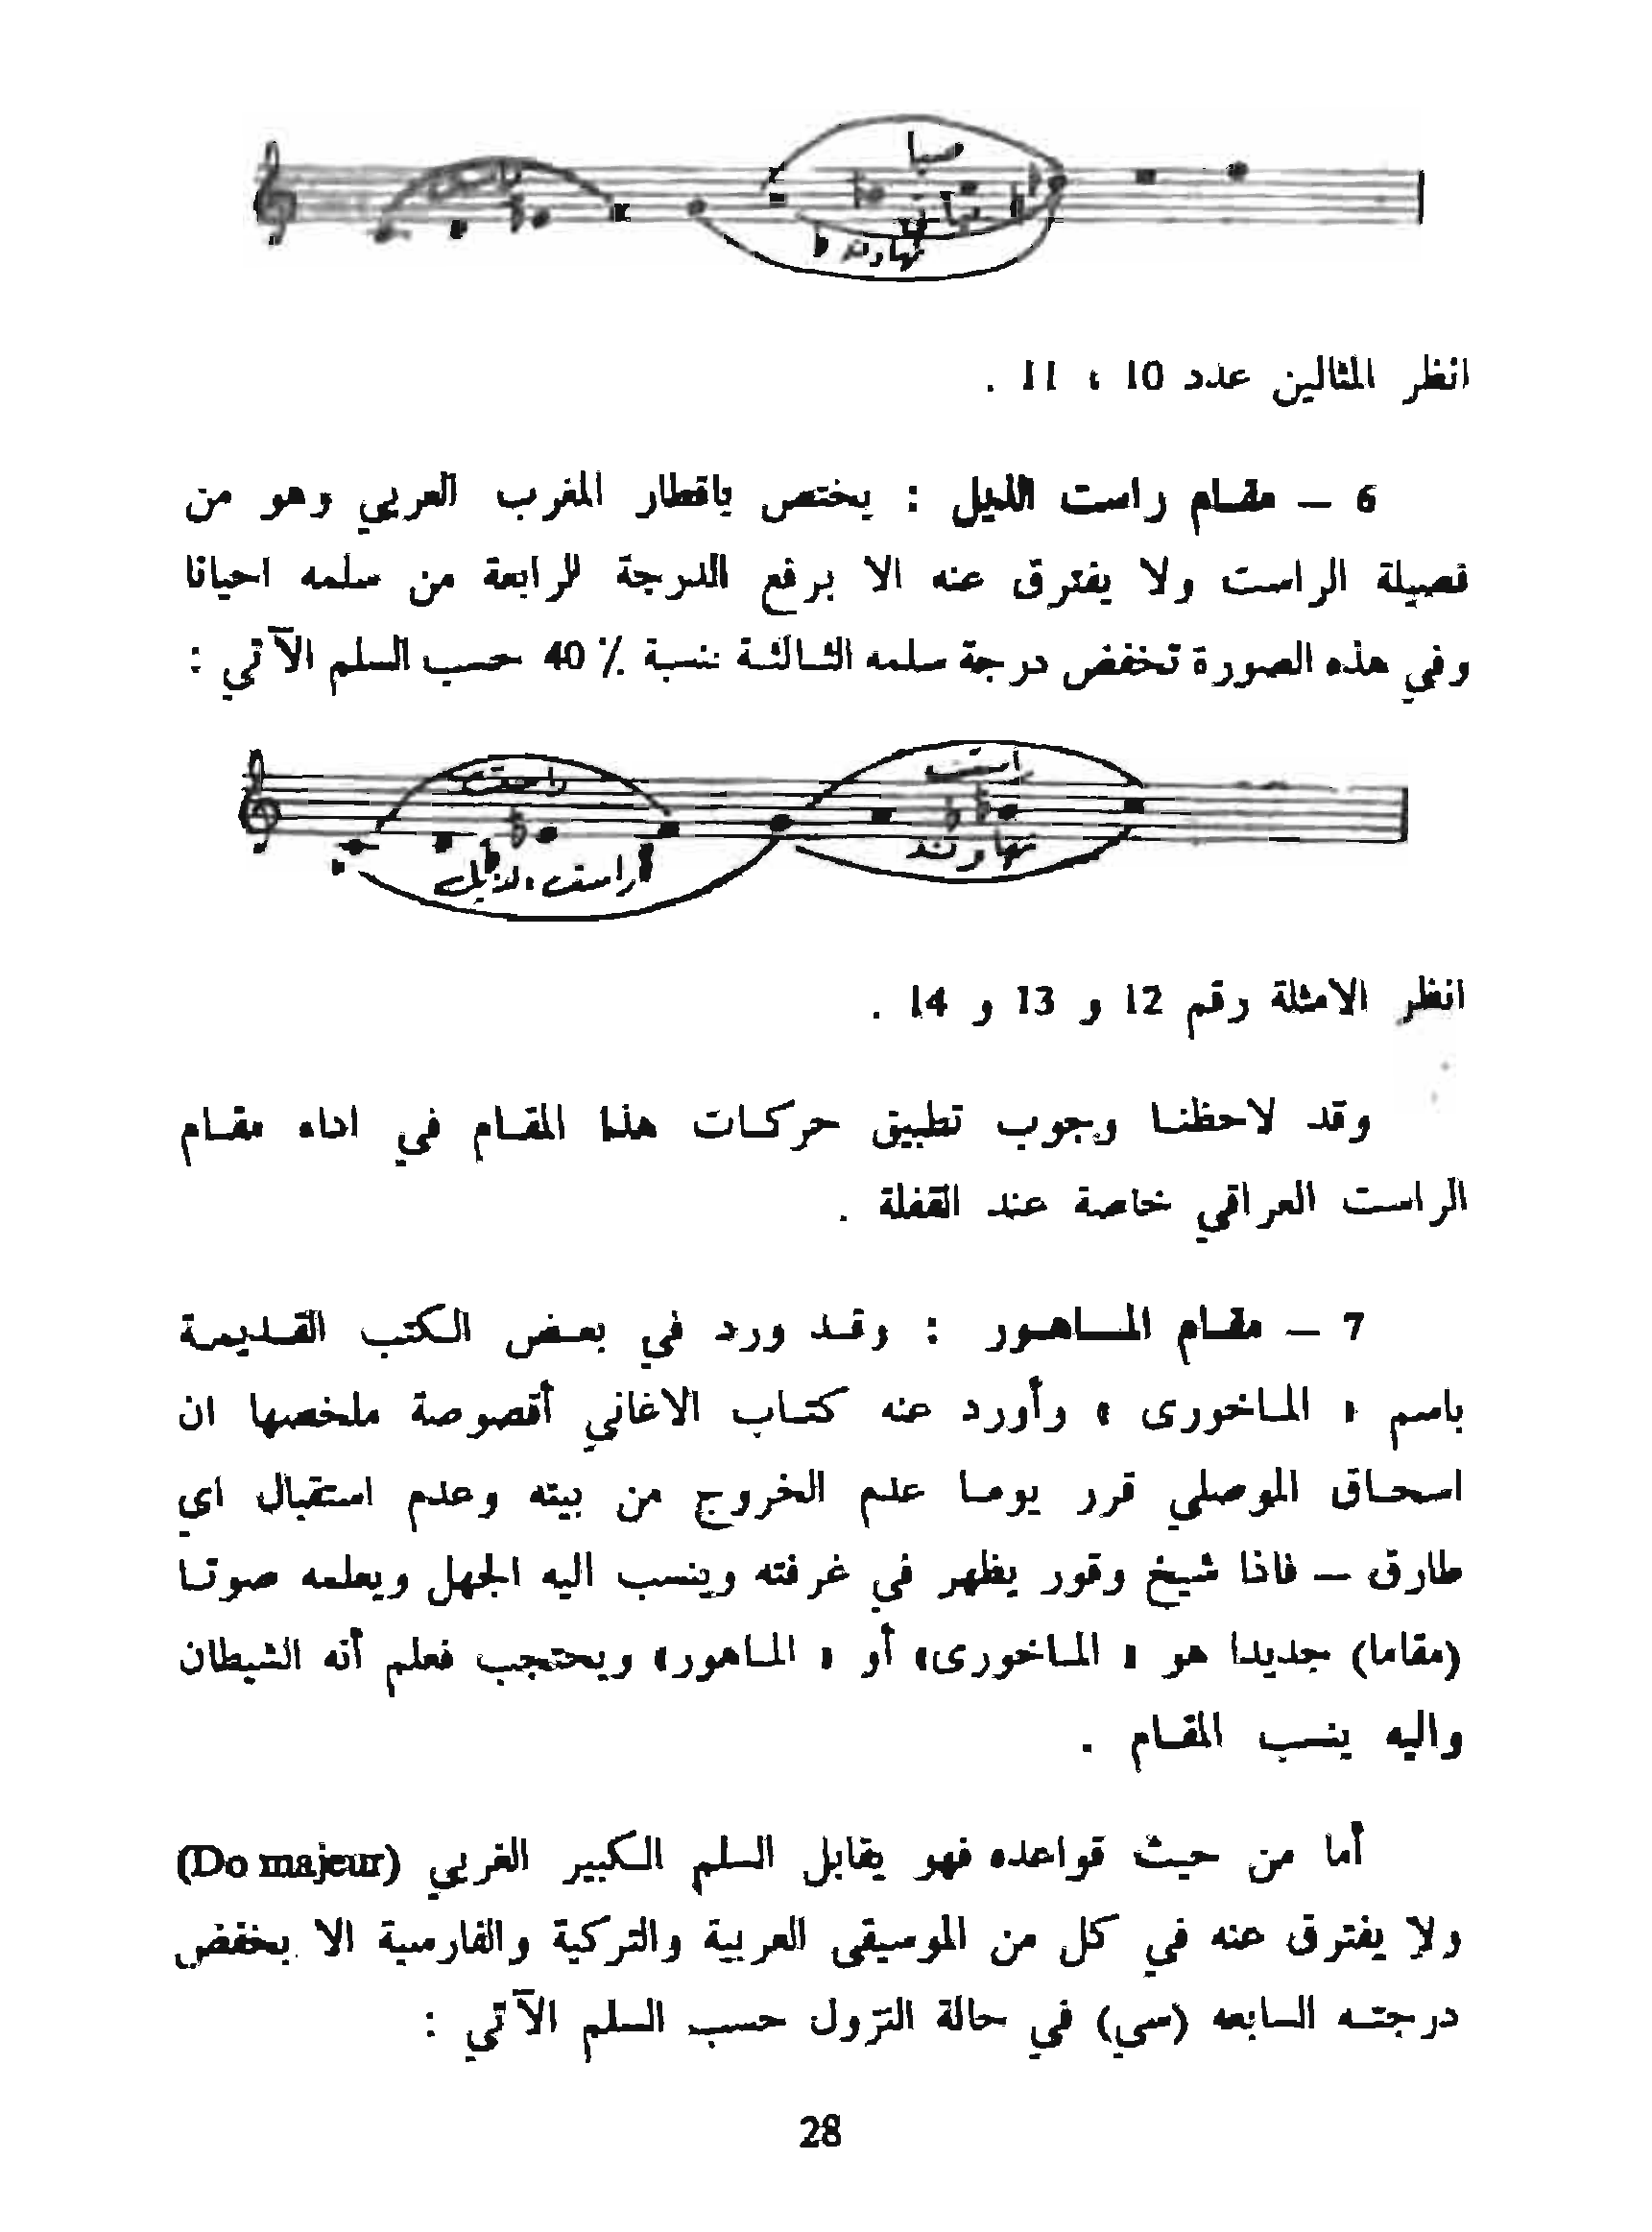 راست
صبا
بياتي
نهاوند
انظر المثالين عدد 10 ، 11 .
6 — مقـام راست الذيل : يختص باقطار المغرب العربي وهو من
فصيلة الراست ولا يفترق عنه الا برفع الدرجة الرابعة من سلمه احيانا
وفي هذه الصورة تخفض درجة سلمه الثـالثـة بنسبة ٪ 40 حسب السلم الآتي :
راست
راست
راست الذيل
نهاوند
انظر الامثلة رقم 12 و 13 و 14 .
وقد لاحظنـا وجوب تطبيق حركـات هذا المقـام في اداء مقـام
الراست العراقي خاصة عند القفلة .
7 — مقـام المـاهـور : وقـد ورد في بعـض الـكتب القـديمـة
باسم « المـاخورى » وأورد عنه كتـاب الاغاني أقصوصة ملخصها ان
اسحـاق الموصلي قرر يومـا عدم الخروج من بيته وعدم استقبال اي
طارق — فاذا شيخ وقور يظهر في غرفته وينسب اليه الجهل ويعلمه صوتـا
(مقاما) جديدا هو « المـاخورى» أو « المـاهور» ويحتجب فعلم أنه الشيطان
واليه ينسب المقـام .
أما من حيث قواعده فهو يقابل السلم الـكبير الغربي (Do majeur)
ولا يفترق عنه في كل من الموسيقى العربية والتركية والفارسية الا بخفض
درجتـه السابعه (سي) في حالة النزول حسب السلم الآتي :
28